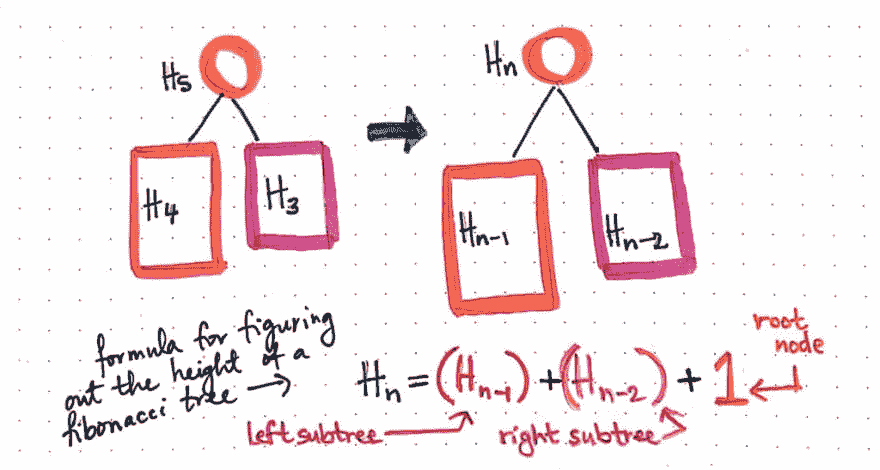 H5
H4
H3
Hn
Hn-1
Hn-2
formula for figuring
out the height of a
fibonacci tree →
Hn = (Hn-1) + (Hn-2) + 1
root
node
left subtree
right subtree